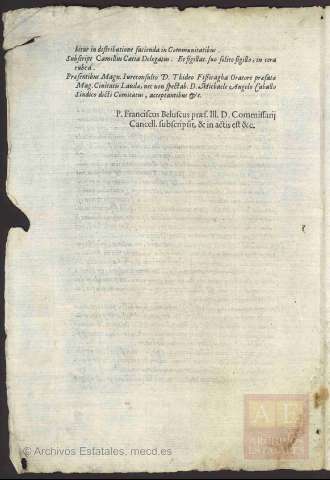 bitur in distributione facienda in Communitatibus.
Subscript. Camillus Catta Delegatus. Et sigillat. suo solito sigillo, in cera
rubea.
Presentibus Magn. Iureconsulto D. Thideo Fissiragba Oratore prefate
Mag. Civitatis Laudæ, nec non spectab. D. Michaele Angelo Caballo
Sindico dicti Comitatus, acceptantibus &c.
P. Franciscus Beluscus præf. Ill. D. Commissarij
Cancell. subscripsit, & in actis est &c.
AE
ARCHIVOS
ESTATALES
© Archivos Estatales, mecd.es